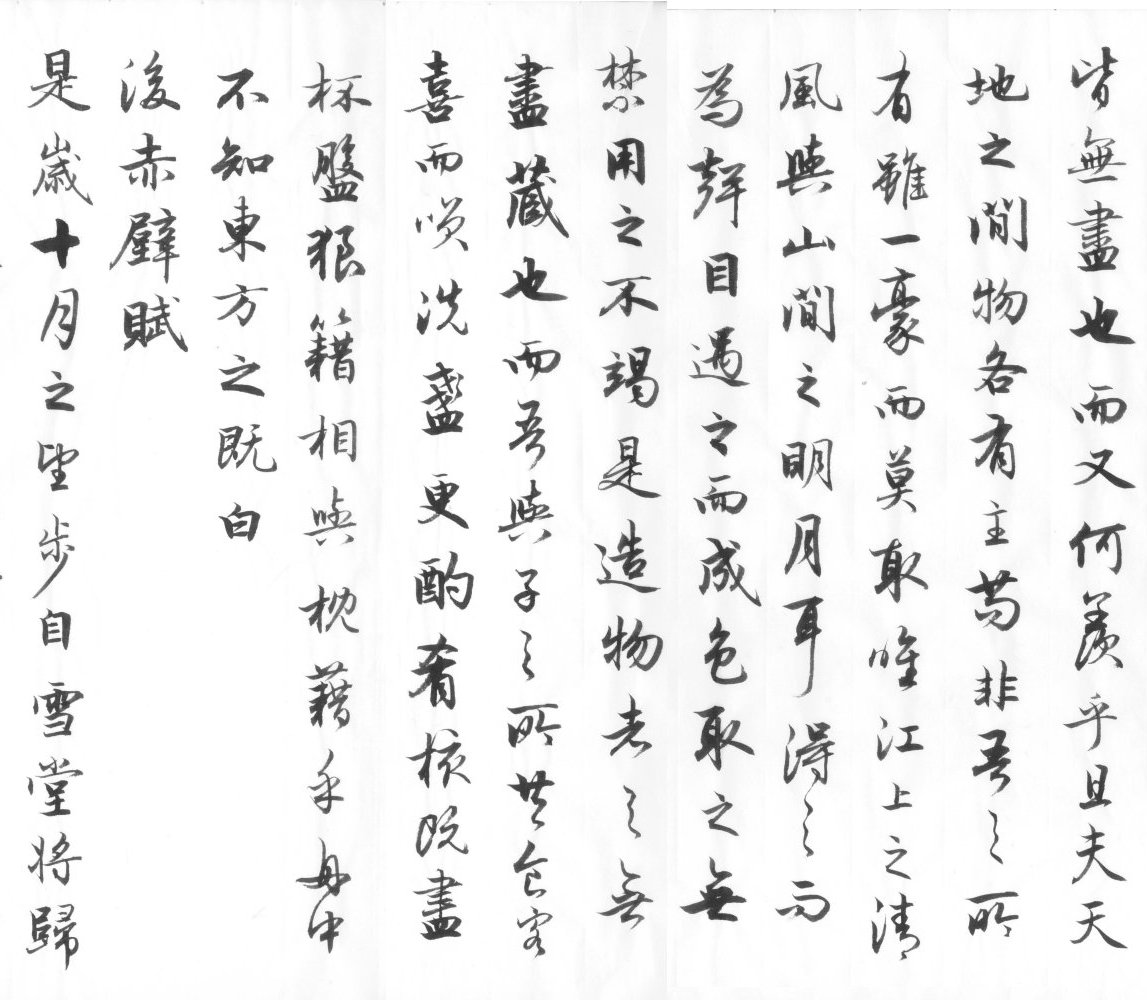 皆無盡也而又何羨乎且夫天
地之間物各有主茍非吾之所
有雖一豪而莫取唯江上之清
風與山間之明月耳得之而
為聲目遇之而成色取之無
禁用之不竭是造物者之無
盡藏也而吾與子之所共食客
喜而笑洗盞更酌肴核既盡
杯盤狼籍相與枕藉乎舟中
不知東方之既白
後赤壁賦
是歲十月之望步自雪堂將歸